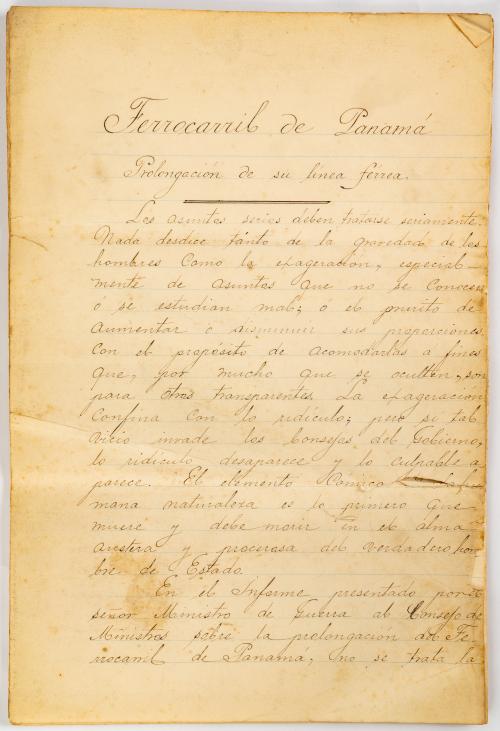 Ferrocarril de Panamá
Prolongación de su línea férrea.
Los asuntos serios deben tratarse seriamente.
Nada desdice tánto de la gravedad de los
hombres como la exageración, especial-
mente de asuntos que no se conocen
ó se estudian mal; ó el prurito de
aumentar ó disminuir sus proporciones
con el propósito de acomodarlas a fines
que, por mucho que se oculten, son
para otros transparentes. La exageración
confina con lo ridículo; pero si tal
vicio invade los Consejos del Gobierno,
lo ridículo desaparece y lo culpable a
parece. El elemento cómico
mana naturaleza es lo primero que
muere y debe morir en el alma
austera y procerosa del verdadero hom
bre de Estado.
En el Informe presentado por el
señor Ministro de Guerra al Consejo de
Ministros sobre la prolongación del Fe-
rrocarril de Panamá, no se trata la